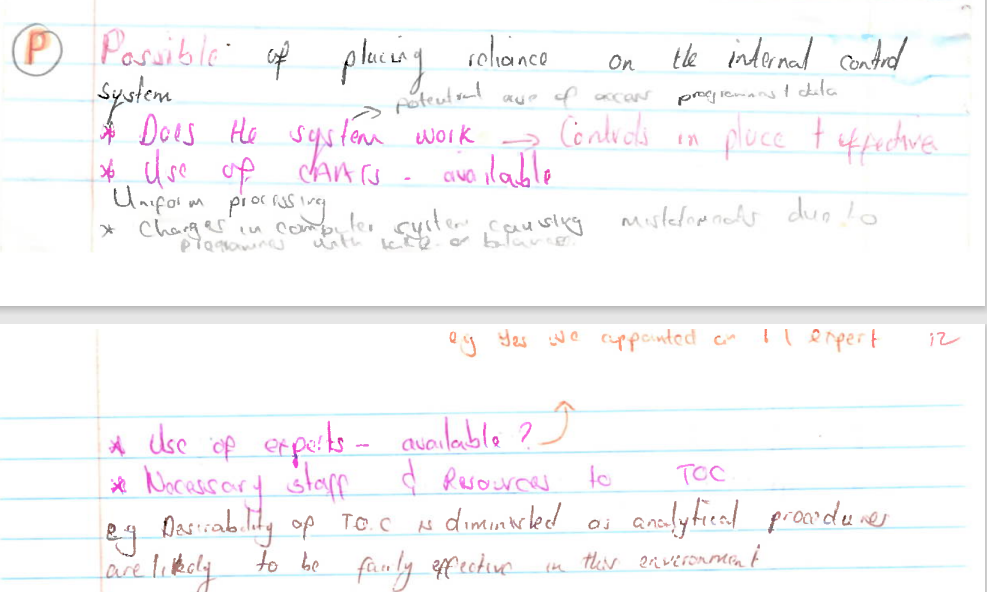 P Possible of placing reliance on the internal control
system
→ potential ave of access programmes / data
* Does the system work → Controls in place + effective
* Use of CAATs - available
Uniform processing
* Changes in computer system causing misstatements due to
programmes with
e.g Yes we appointed an IT expert 12
* Use of experts - available?
* Necessary staff & Resources to TOC
eg Desirability of T.O.C is diminished as analytical procedures
are likely to be fairly effective in this environment